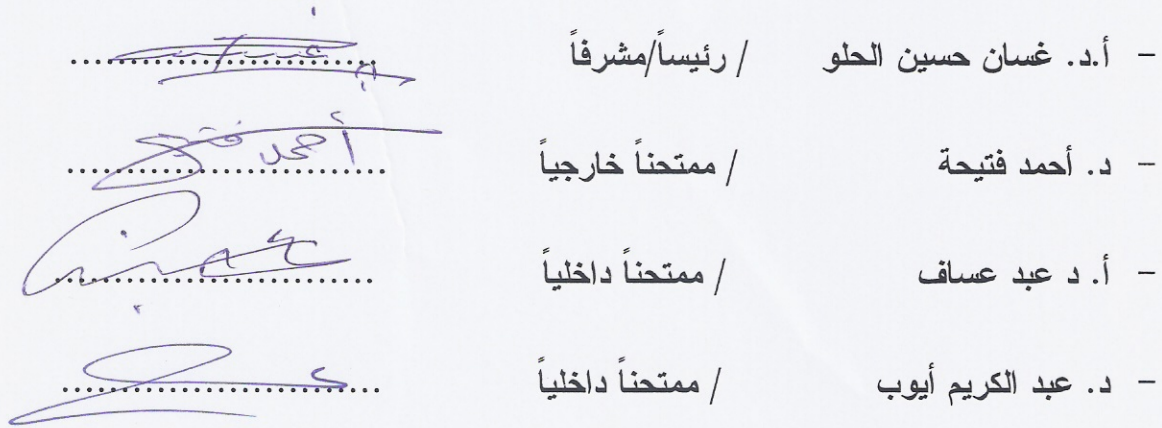 - أ.د. غسان حسين الحلو / رئيساً/مشرفاً ..............................
- د. أحمد فتيحة / ممتحناً خارجياً ..............................
- أ. د عبد عساف / ممتحناً داخلياً ..............................
- د. عبد الكريم أيوب / ممتحناً داخلياً ..............................